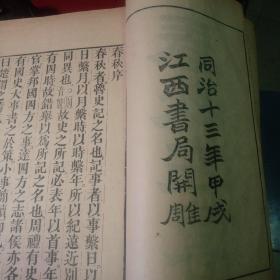 同治十三年甲戌
江西書局開雕
春秋序
春秋者魯史記之名也記事者以事繫日以
日繫月以月繫時以時繫年所以紀遠近別
同異也故史之所記必表年以首事年
有四時故錯舉以為所記之名也周禮有史
官掌邦國四方之事達四方之志諸侯亦各
有國史大事書之於策小事簡牘